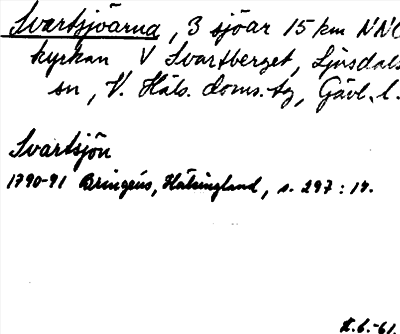 Svartsjöarna, 3 sjöar 15 km NNO
kyrkan V Svartberget, Ljusdals
sn, V. Häls. doms.-tg, Gävl. l.
Svartsjön
1790-91 Bringéus, Hälsingland, s. 297: 14.
-61.